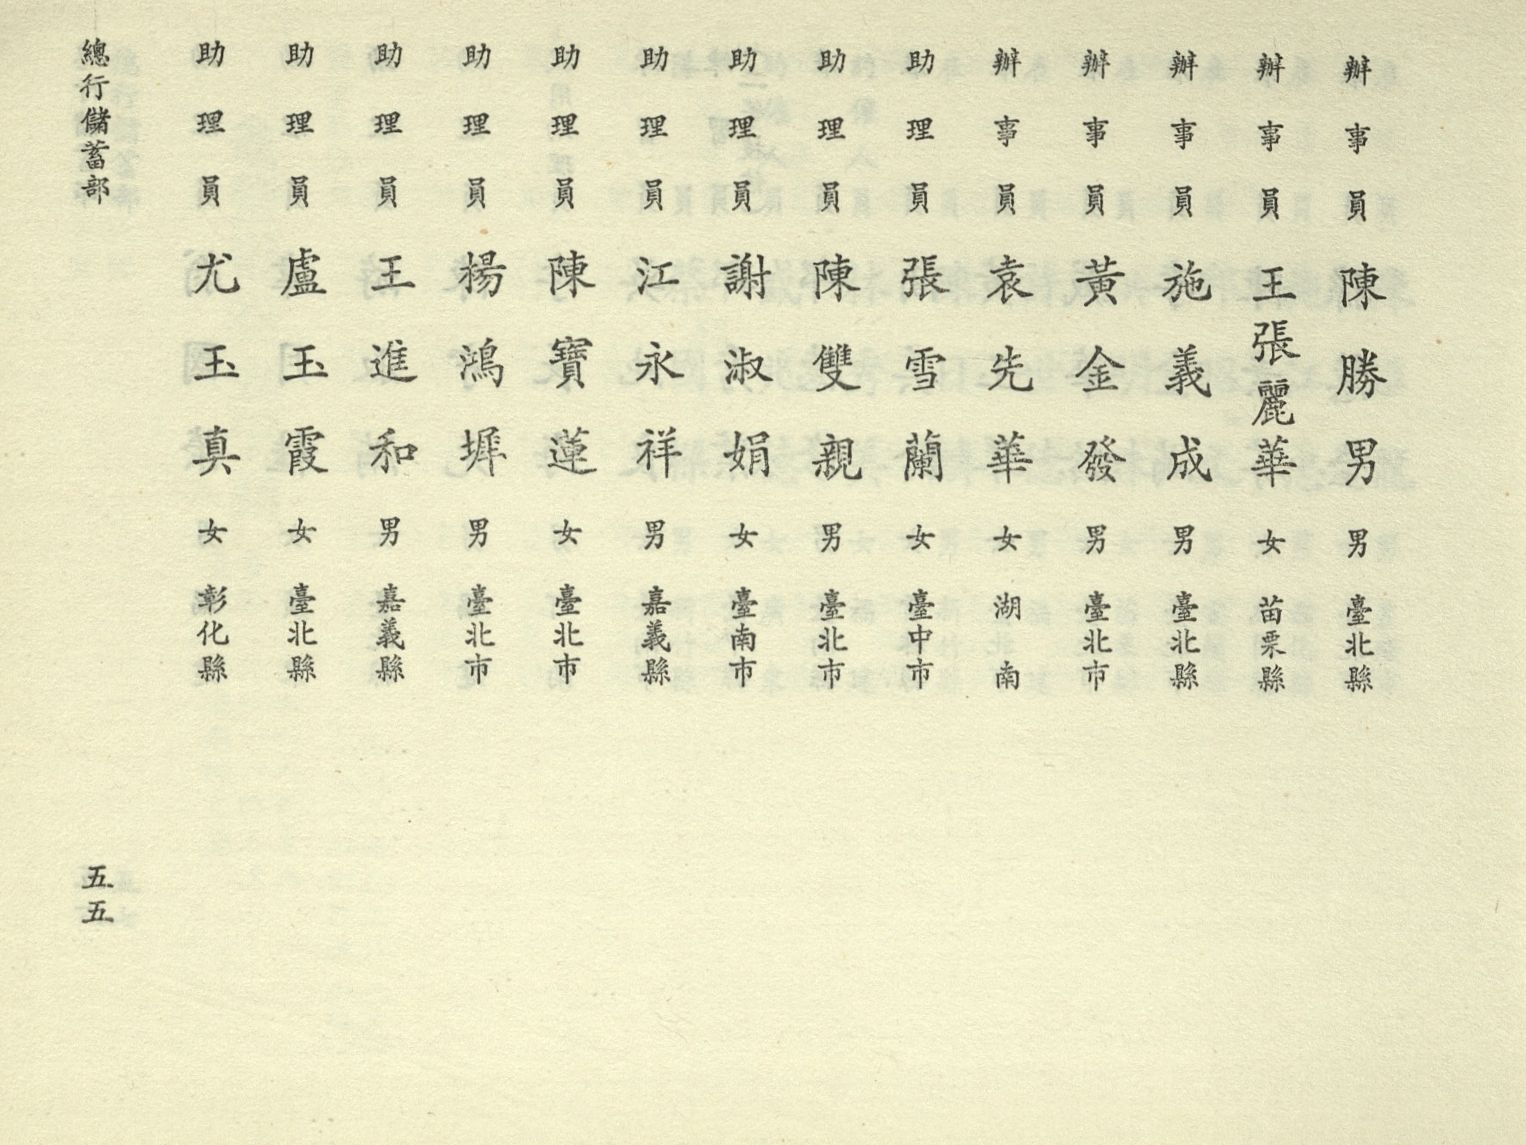 辦事員 陳勝男 男 臺北縣
辦事員 王張麗華 女 苗栗縣
辦事員 施義成 男 臺北縣
辦事員 黃金發 男 臺北市
辦事員 袁先華 女 湖南
助理員 張雪蘭 女 臺中市
助理員 陳雙親 男 臺北市
助理員 謝淑娟 女 臺南市
助理員 江永祥 男 嘉義縣
助理員 陳寶蓮 女 臺北市
助理員 楊鴻墀 男 臺北市
助理員 王進和 男 嘉義縣
助理員 盧玉霞 女 臺北縣
助理員 尤玉真 女 彰化縣
總行儲蓄部 五五